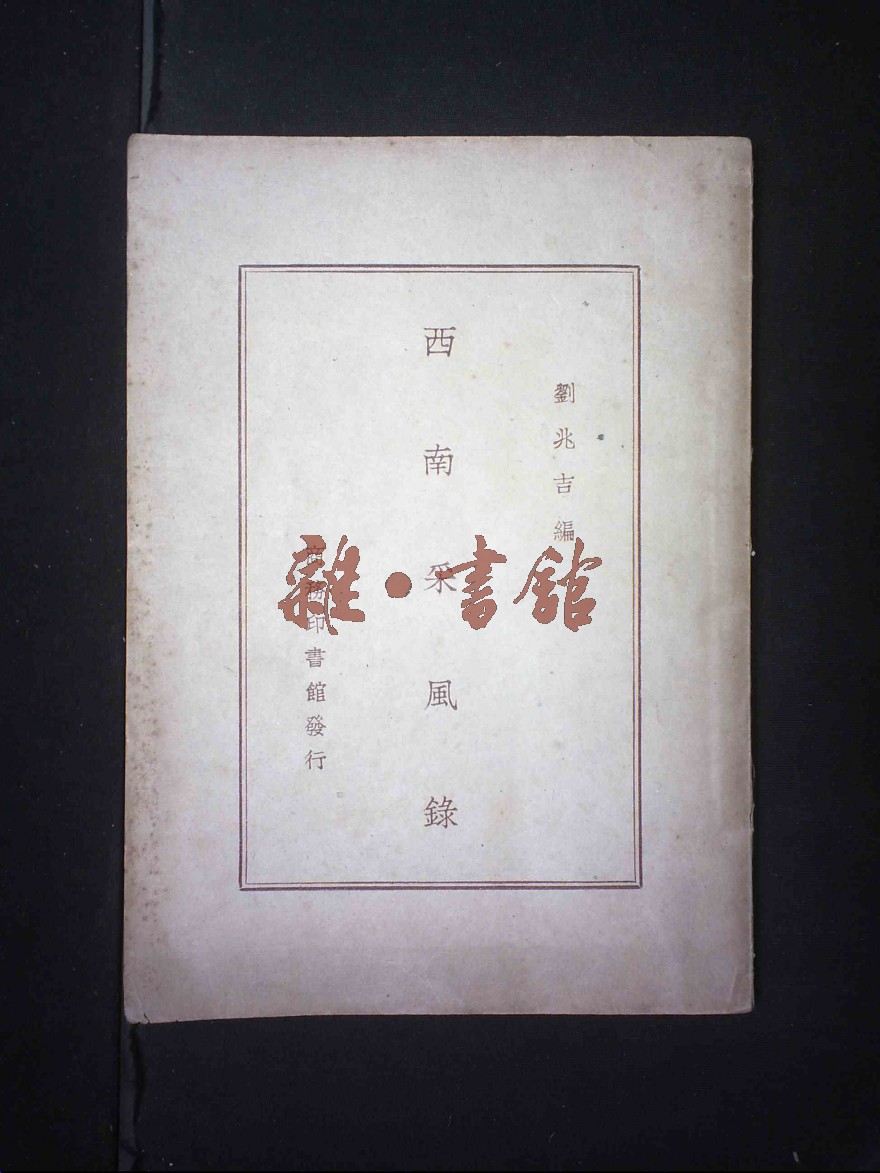 劉兆吉編
西南采風錄
商務印書館發行
雜·書館